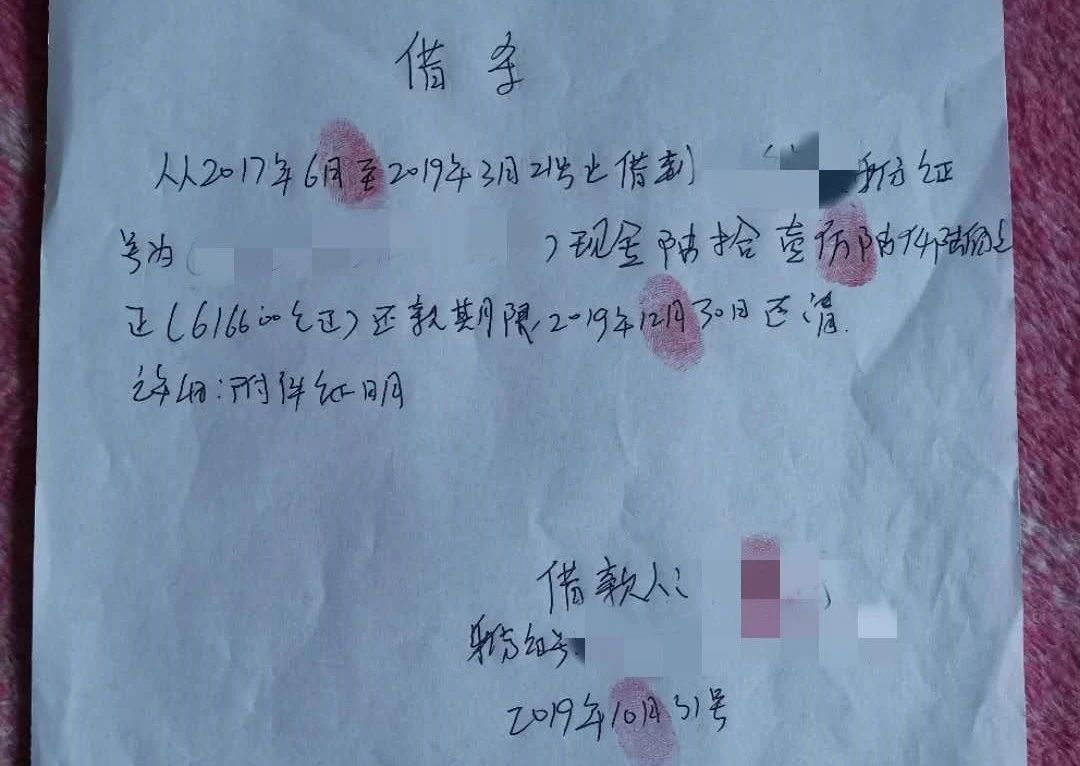 借条
从2017年6月至2019年3月21号止借到 身份证
号为( )现金陆拾壹万陆仟陆佰元
正(616600元正)还款期限,2019年12月30日还清.
注明:附件证明
借款人:
身份证号:
2019年10月31号